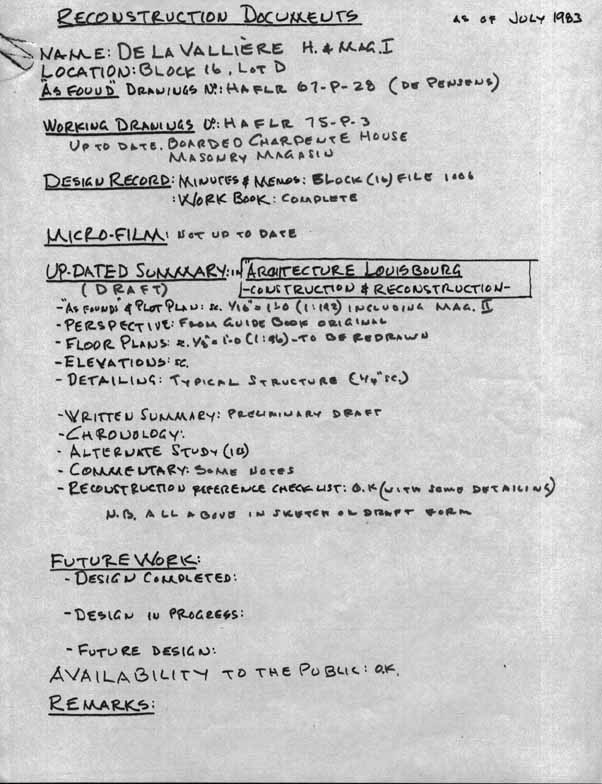 RECONSTRUCTION DOCUMENTS AS OF JULY 1983
NAME: DE LA VALLIÈRE H. & MAG. I
LOCATION: BLOCK 16, LOT D
"AS FOUND" DRAWINGS No: HAFLR 67-P-28 (DE PENSENS)
WORKING DRAWINGS No: HAFLR 75-P-3
UP TO DATE. BOARDED CHARPENTE HOUSE
MASONRY MAGASIN
DESIGN RECORD: MINUTES & MEMOS: BLOCK (16) FILE 1006
: WORK BOOK: COMPLETE
MICRO-FILM: NOT UP TO DATE
UP-DATED SUMMARY: IN "ARCHITECTURE LOUISBOURG
(DRAFT) -CONSTRUCTION & RECONSTRUCTION-
- "AS FOUNDS" & PLOT PLAN: SC. 1/16" = 1'-0 (1:192) INCLUDING MAG. II
- PERSPECTIVE: FROM GUIDE BOOK ORIGINAL
- FLOOR PLANS: SC. 1/8" = 1'-0 (1:96) - TO BE REDRAWN
- ELEVATIONS: SC.
- DETAILING: TYPICAL STRUCTURE (1/4" SC.)
- WRITTEN SUMMARY: PRELIMINARY DRAFT
- CHRONOLOGY:
- ALTERNATE STUDY (1B)
- COMMENTARY: SOME NOTES
- RECONSTRUCTION REFERENCE CHECK LIST: O.K (WITH SOME DETAILING)
N.B. ALL ABOVE IN SKETCH OR DRAFT FORM
FUTURE WORK:
- DESIGN COMPLETED:
- DESIGN IN PROGRESS:
- FUTURE DESIGN:
AVAILABILITY TO THE PUBLIC: O.K.
REMARKS: